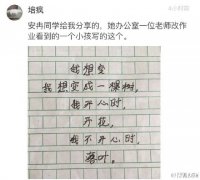 培枫
4小时前
安冉同学给我分享的，她办公室一位老师改作
业看到的一个小孩写的这个。
我想变
我想变成一棵树，
我开心时，
开花，
我不开心时，
落叶。